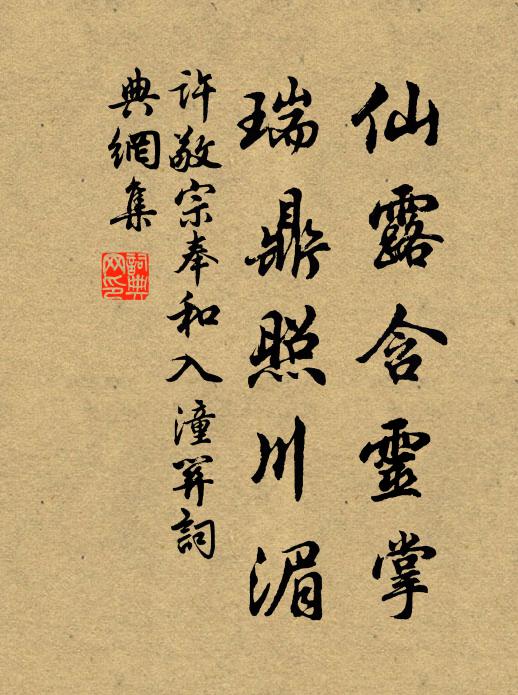 仙露含靈掌
瑞鼎照川湄
許敬宗奉和入潼關詞
典網集
詞典網印